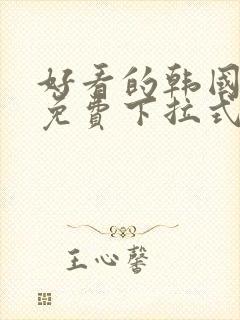 好看的韩国
免費下拉式
王心馨